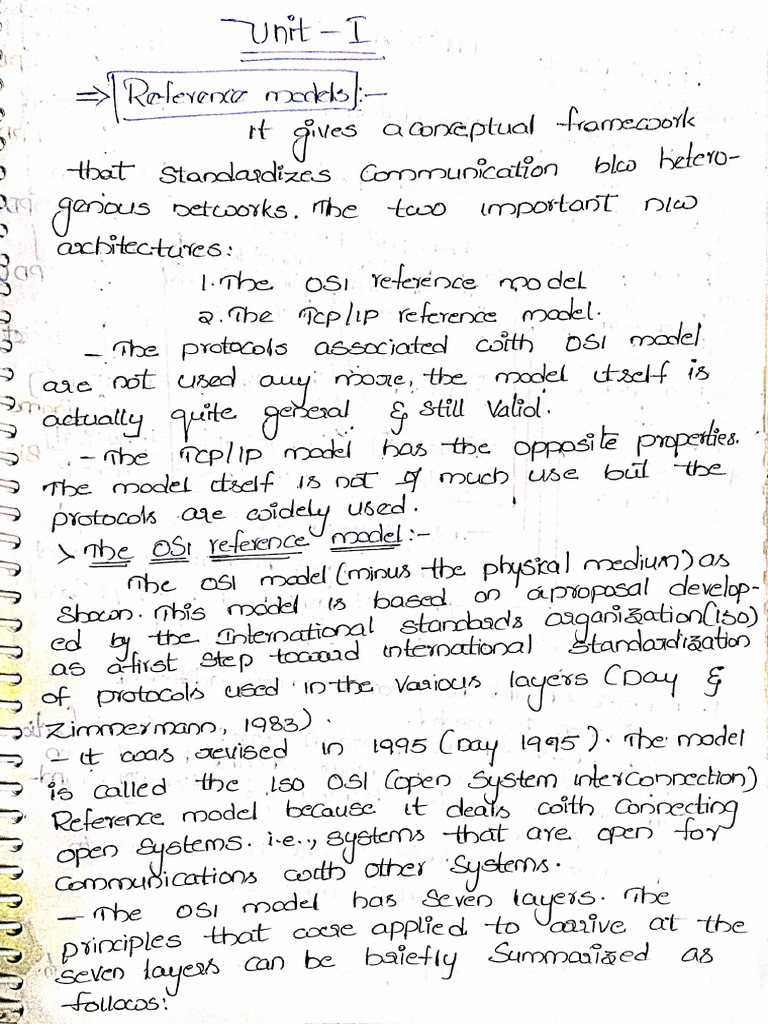 Unit - I
⇒ Reference models :-
It gives a conceptual framework
that standardizes communication b/w hetero-
genious networks. The two important n/w
architectures:
1. The OSI reference model
2. The TCP/IP reference model.
- The protocols associated with OSI model
are not used any more, the model itself is
actually quite general & still valid.
- The TCP/IP model has the opposite properties.
The model itself is not of much use but the
protocols are widely used.
> The OSI reference model :-
The OSI model (minus the physical medium) as
shown. This model is based on a proposal develop-
ed by the International standards organization (ISO)
as a first step toward international standardization
of protocols used in the various layers (Day &
Zimmermann, 1983).
- it was revised in 1995 (Day 1995). The model
is called the ISO OSI (open system interconnection)
Reference model because it deals with connecting
open systems. i.e., systems that are open for
communications with other systems.
- The OSI model has seven layers. The
principles that were applied to arrive at the
seven layers can be briefly summarized as
follows: